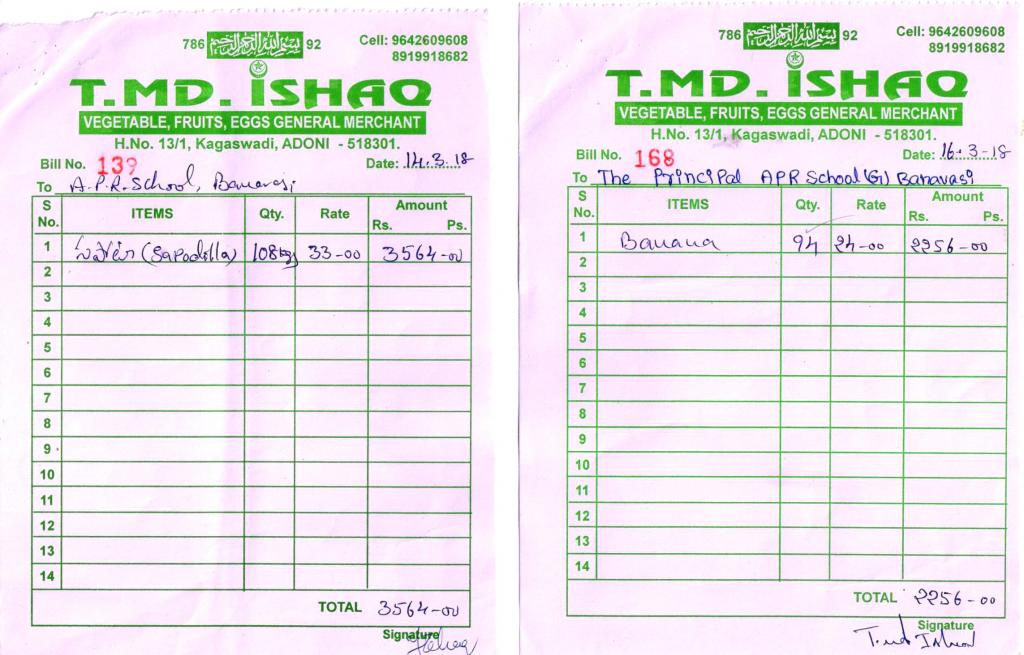 786 بسم الله الرحمن الرحيم 92
Cell: 9642609608
8919918682
T.MD. ISHAQ
VEGETABLE, FRUITS, EGGS GENERAL MERCHANT
H.No. 13/1, Kagaswadi, ADONI - 518301.
Bill No. 139 Date: 14.3.18
To A.P.R. School, Banavasi
S No. ITEMS Qty. Rate Amount Rs. Ps.
1 (Sapodilla) 108kgs 33-00 3564-00
2
3
4
5
6
7
8
9
10
11
12
13
14
TOTAL 3564-00
Signature
786 بسم الله الرحمن الرحيم 92
Cell: 9642609608
8919918682
T.MD. ISHAQ
VEGETABLE, FRUITS, EGGS GENERAL MERCHANT
H.No. 13/1, Kagaswadi, ADONI - 518301.
Bill No. 168 Date: 16.3-18
To The Principal APR School (G) Banavasi
S No. ITEMS Qty. Rate Amount Rs. Ps.
1 Banana 94 24-00 2256-00
2
3
4
5
6
7
8
9
10
11
12
13
14
TOTAL 2256-00
Signature
T.md Ishaq